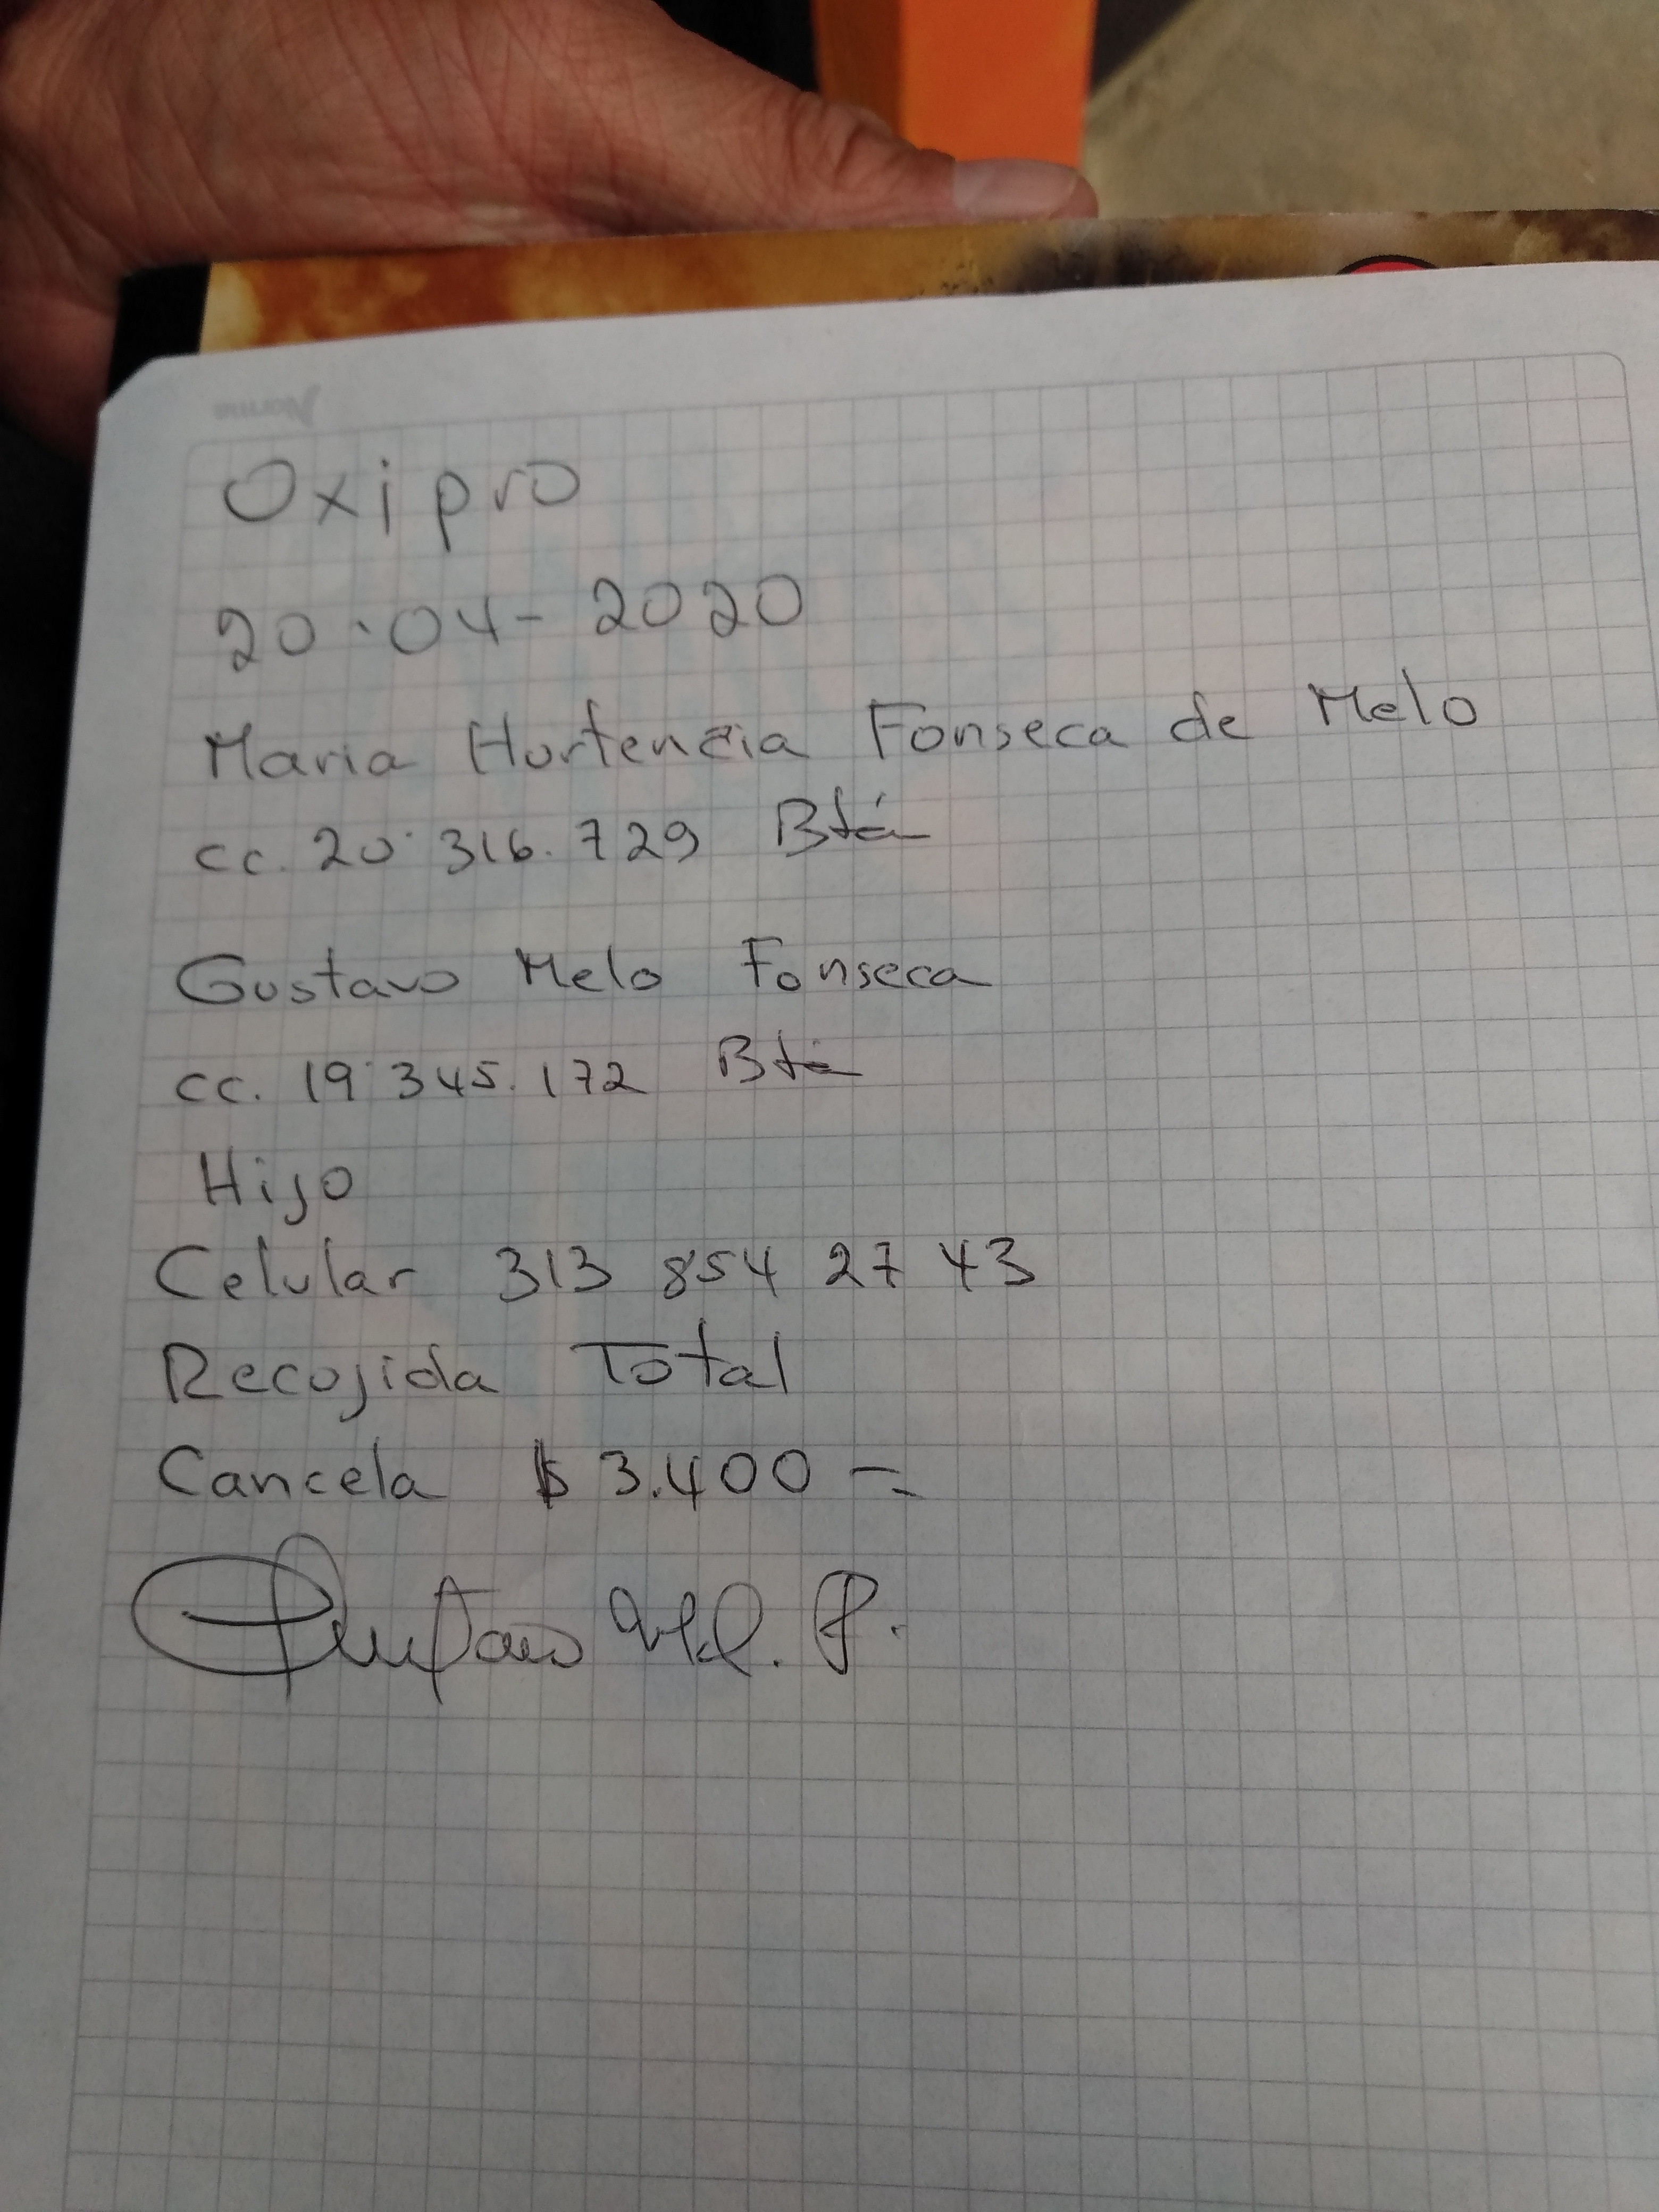 Norma
Oxipro
20·04-2020
Maria Hortencia Fonseca de Melo
cc. 20·316.729 Btá
Gustavo Melo Fonseca
cc. 19·345.172 Bta
Hijo
Celular 313 854 27 43
Recojida Total
Cancela $ 3.400 =
Gustavo Mel. F.